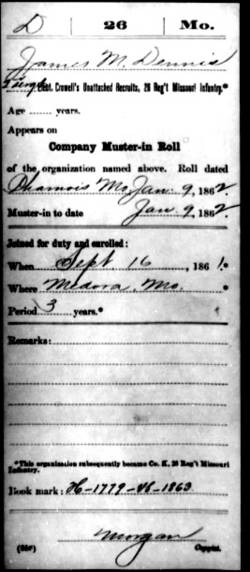 D 26 Mo.
James M. Dennis
Capt. Crowell's Unattached Recruits, 26 Reg't Missouri Infantry.*
Age years.
Appears on
Company Muster-in Roll
of the organization named above. Roll dated
Chamois Mo, Jan. 9, 1862.
Muster-in to date Jan 9, 1862.
Joined for duty and enrolled:
When Sept. 16, 1861.*
Where Medora, Mo.
Period 3 years.*
Remarks:
*This organization subsequently became Co. K, 26 Reg't Missouri
Infantry.
Book mark: H-1779-M-1863
Morgan
(358) Copyist.